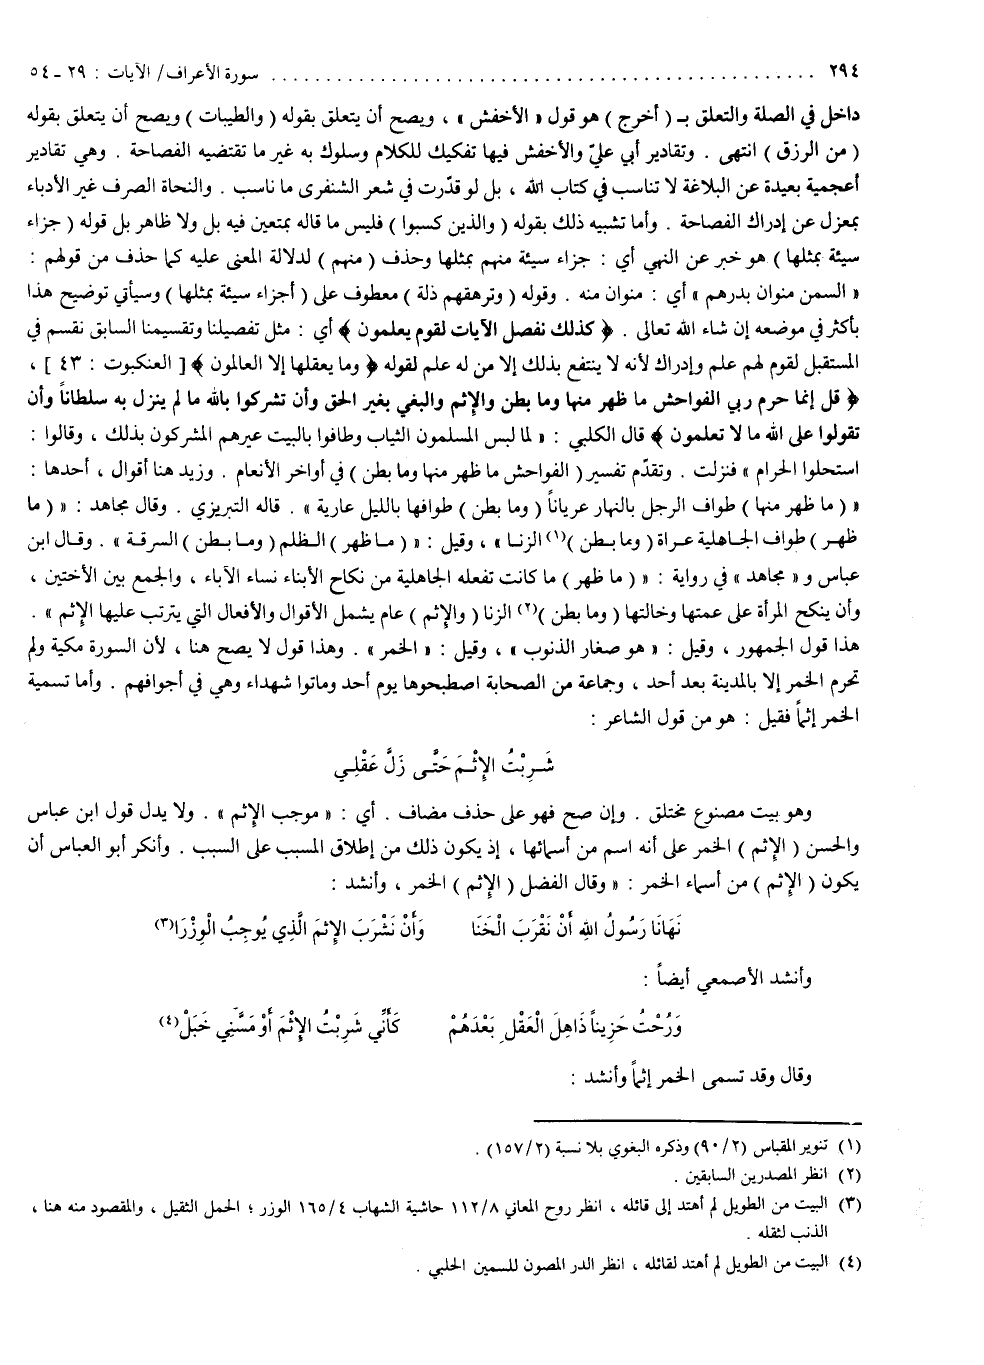 ٢٩٤ ................................................ سورة الأعراف/ الآيات : ٢٩ - ٥٤
داخل في الصلة والتعلق بـ ( أخرج ) هو قول « الأخفش » ، ويصح أن يتعلق بقوله ( والطيبات ) ويصح أن يتعلق بقوله
( من الرزق ) انتهى . وتقادير أبي عليّ والأخفش فيها تفكيك للكلام وسلوك به غير ما تقتضيه الفصاحة . وهي تقادير
أعجمية بعيدة عن البلاغة لا تناسب في كتاب الله ، بل لو قدّرت في شعر الشنفرى ما ناسب . والنحاة الصرف غير الأدباء
بمعزل عن إدراك الفصاحة . وأما تشبيه ذلك بقوله ( والذين كسبوا ) فليس ما قاله بمتعين فيه بل ولا ظاهر بل قوله ( جزاء
سيئة بمثلها ) هو خبر عن النهي أي : جزاء سيئة منهم بمثلها وحذف ( منهم ) لدلالة المعنى عليه كما حذف من قولهم :
« السمن منوان بدرهم » أي : منوان منه . وقوله ( وترهقهم ذلة ) معطوف على ( أجزاء سيئة بمثلها ) وسيأتي توضيح هذا
بأكثر في موضعه إن شاء الله تعالى . ﴿ كذلك نفصل الآيات لقوم يعلمون ﴾ أي : مثل تفصيلنا وتقسيمنا السابق نقسم في
المستقبل لقوم لهم علم وإدراك لأنه لا ينتفع بذلك إلا من له علم لقوله ﴿ وما يعقلها إلا العالمون ﴾ [ العنكبوت : ٤٣ ] ،
﴿ قل إنما حرم ربي الفواحش ما ظهر منها وما بطن والإثم والبغي بغير الحق وأن تشركوا بالله ما لم ينزل به سلطاناً وأن
تقولوا على الله ما لا تعلمون ﴾ قال الكلبي : « لما لبس المسلمون الثياب وطافوا بالبيت عيرهم المشركون بذلك ، وقالوا :
استحلوا الحرام » فنزلت . وتقدّم تفسير ( الفواحش ما ظهر منها وما بطن ) في أواخر الأنعام . وزيد هنا أقوال ، أحدها :
« ( ما ظهر منها ) طواف الرجل بالنهار عرياناً ( وما بطن ) طوافها بالليل عارية » . قاله التبريزي . وقال مجاهد : « ( ما
ظهر ) طواف الجاهلية عراة ( وما بطن )(١) الزنا » ، وقيل : « ( ما ظهر ) الظلم ( وما بطن ) السرقة » . وقال ابن
عباس و « مجاهد » في رواية : « ( ما ظهر ) ما كانت تفعله الجاهلية من نكاح الأبناء نساء الآباء ، والجمع بين الأختين ،
وأن ينكح المرأة على عمتها وخالتها ( وما بطن )(٢) الزنا ( والإثم ) عام يشمل الأقوال والأفعال التي يترتب عليها الإثم » .
هذا قول الجمهور ، وقيل : « هو صغار الذنوب » ، وقيل : « الخمر » . وهذا قول لا يصح هنا ، لأن السورة مكية ولم
تحرم الخمر إلا بالمدينة بعد أحد ، وجماعة من الصحابة اصطبحوها يوم أحد وماتوا شهداء وهي في أجوافهم . وأما تسمية
الخمر إثماً فقيل : هو من قول الشاعر :
شَرِبْتُ الإِثْمَ حَتَّى زَلَّ عَقْلِي
وهو بيت مصنوع مختلق . وإن صح فهو على حذف مضاف . أي : « موجب الإثم » . ولا يدل قول ابن عباس
والحسن ( الإثم ) الخمر على أنه اسم من أسمائها ، إذ يكون ذلك من إطلاق المسبب على السبب . وأنكر أبو العباس أن
يكون ( الإثم ) من أسماء الخمر : « وقال الفضل ( الإثم ) الخمر ، وأنشد :
نَهَانَا رَسُولُ اللهِ أَنْ نَقْرَبَ الْخَنَا وَأَنْ نَشْرَبَ الإِثْمَ الَّذِي يُوجِبُ الْوِزْرَا(٣)
وأنشد الأصمعي أيضاً :
وَرُحْتُ حَزِيناً ذَاهِلَ الْعَقْلِ بَعْدَهُمْ كَأَنِّي شَرِبْتُ الإِثْمَ أَوْ مَسَّنِي خَبَلْ(٤)
وقال وقد تسمى الخمر إثماً وأنشد :
(١) تنوير المقباس (٩٠/٢) وذكره البغوي بلا نسبة (١٥٧/٢) .
(٢) انظر المصدرين السابقين .
(٣) البيت من الطويل لم أهتد إلى قائله ، انظر روح المعاني ١١٢/٨ حاشية الشهاب ١٦٥/٤ الوزر ؛ الحمل الثقيل ، والمقصود منه هنا ،
الذنب لثقله .
(٤) البيت من الطويل لم أهتد لقائله ، انظر الدر المصون للسمين الحلبي .